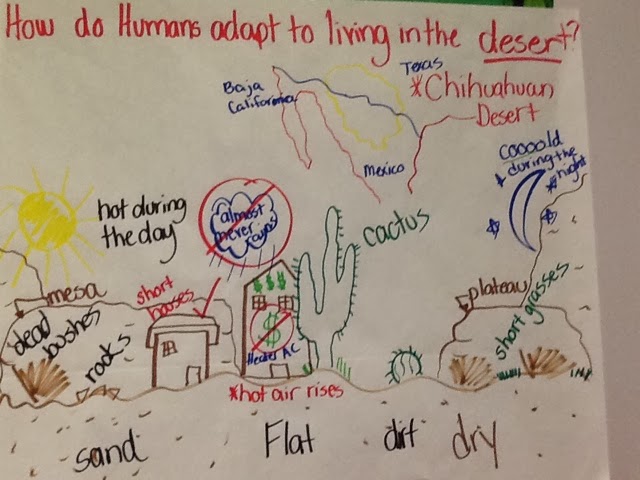 How do Humans adapt to living in the desert?
Baja
California
Texas
*Chihuahuan
Desert
Mexico
Coooold
during the
night
hot during
the day
almost
never
rains
cactus
mesa
short
houses
plateau
dead
bushes
rocks
$ $ $
$
Heater AC
short grasses
*hot air rises
sand
Flat
dirt
dry